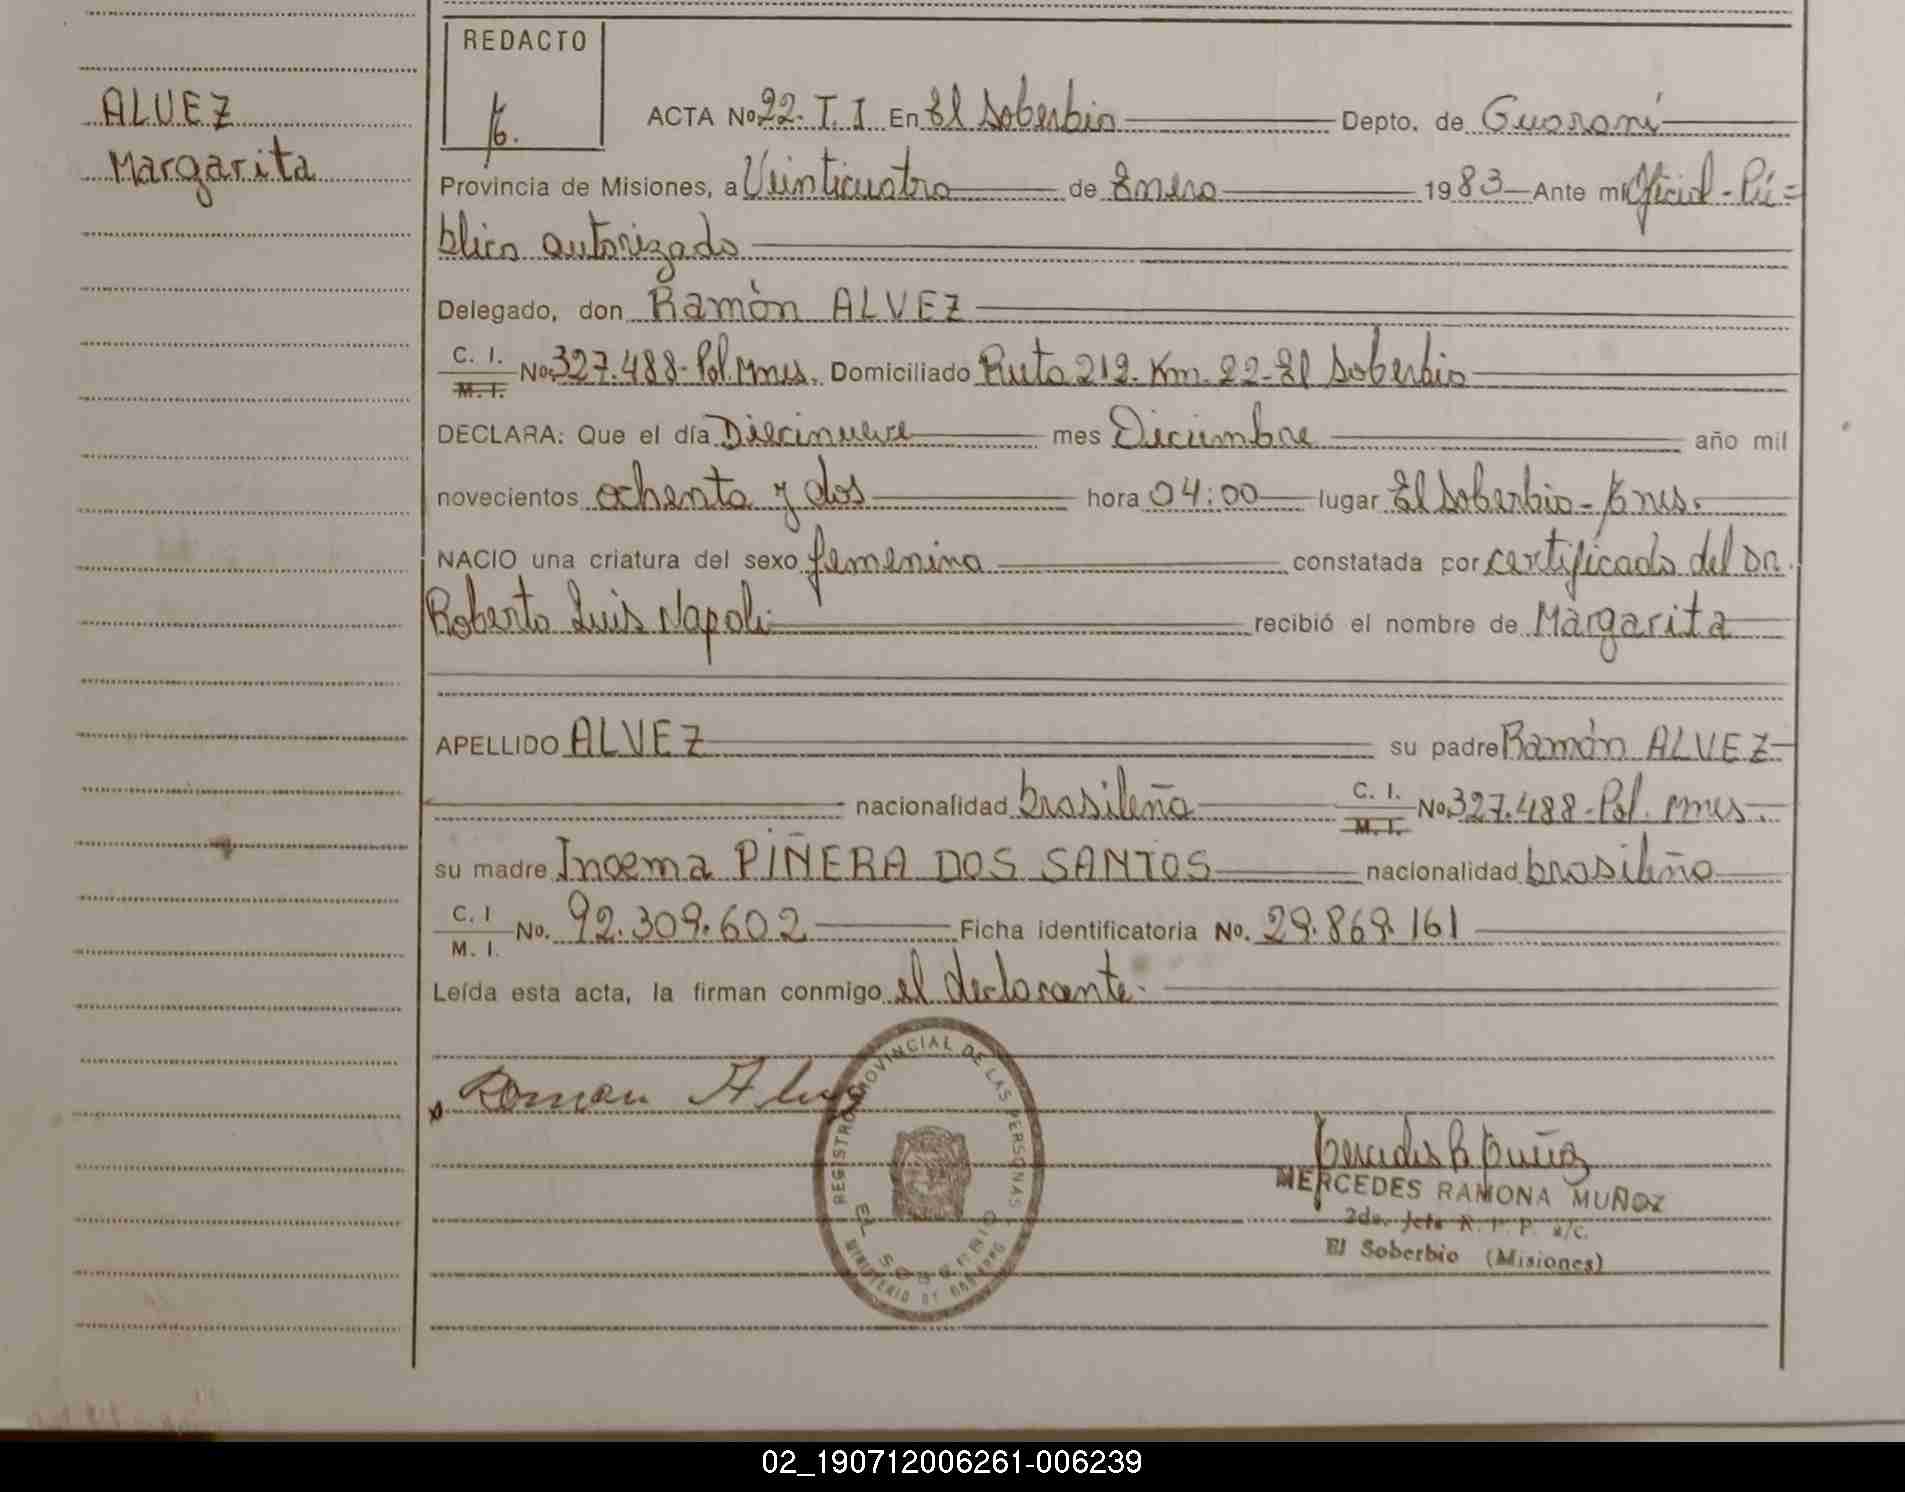 REDACTO
ALVEZ
Margarita
ACTA No 22. T. I En El Soberbio Depto. de Guaraní
Provincia de Misiones, a Veinticuatro de Enero 1983 Ante mi Oficial-Pú=
blico autorizado
Delegado, don Ramón ALVEZ
C. I.
M. I.
No. 327.488-Pol. Mnes. Domiciliado Ruta 212. Km. 22-El Soberbio
DECLARA: Que el día Diecinueve mes Diciembre año mil
novecientos ochenta y dos hora 04:00 lugar El Soberbio-Mnes.
NACIO una criatura del sexo femenino constatada por certificado del Dr.
Roberto Luis Napoli recibió el nombre de Margarita
APELLIDO ALVEZ su padre Ramón ALVEZ
nacionalidad brasileña C. I. No. 327.488-Pol. Mnes.
M. I.
su madre Inoema PIÑERA DOS SANTOS nacionalidad brasileña
C. I
M. I.
No. 92.309.602 Ficha identificatoria No. 29.869.161
Leída esta acta, la firman conmigo el declarante.
Roman Alves
REGISTRO PROVINCIAL DE LAS PERSONAS
EL SOBERBIO
MINISTERIO DE GOBIERNO
Mercedes R Muñoz
MERCEDES RAMONA MUÑOZ
2da. Jefe R. P. P. a/c.
El Soberbio (Misiones)
02_190712006261-006239